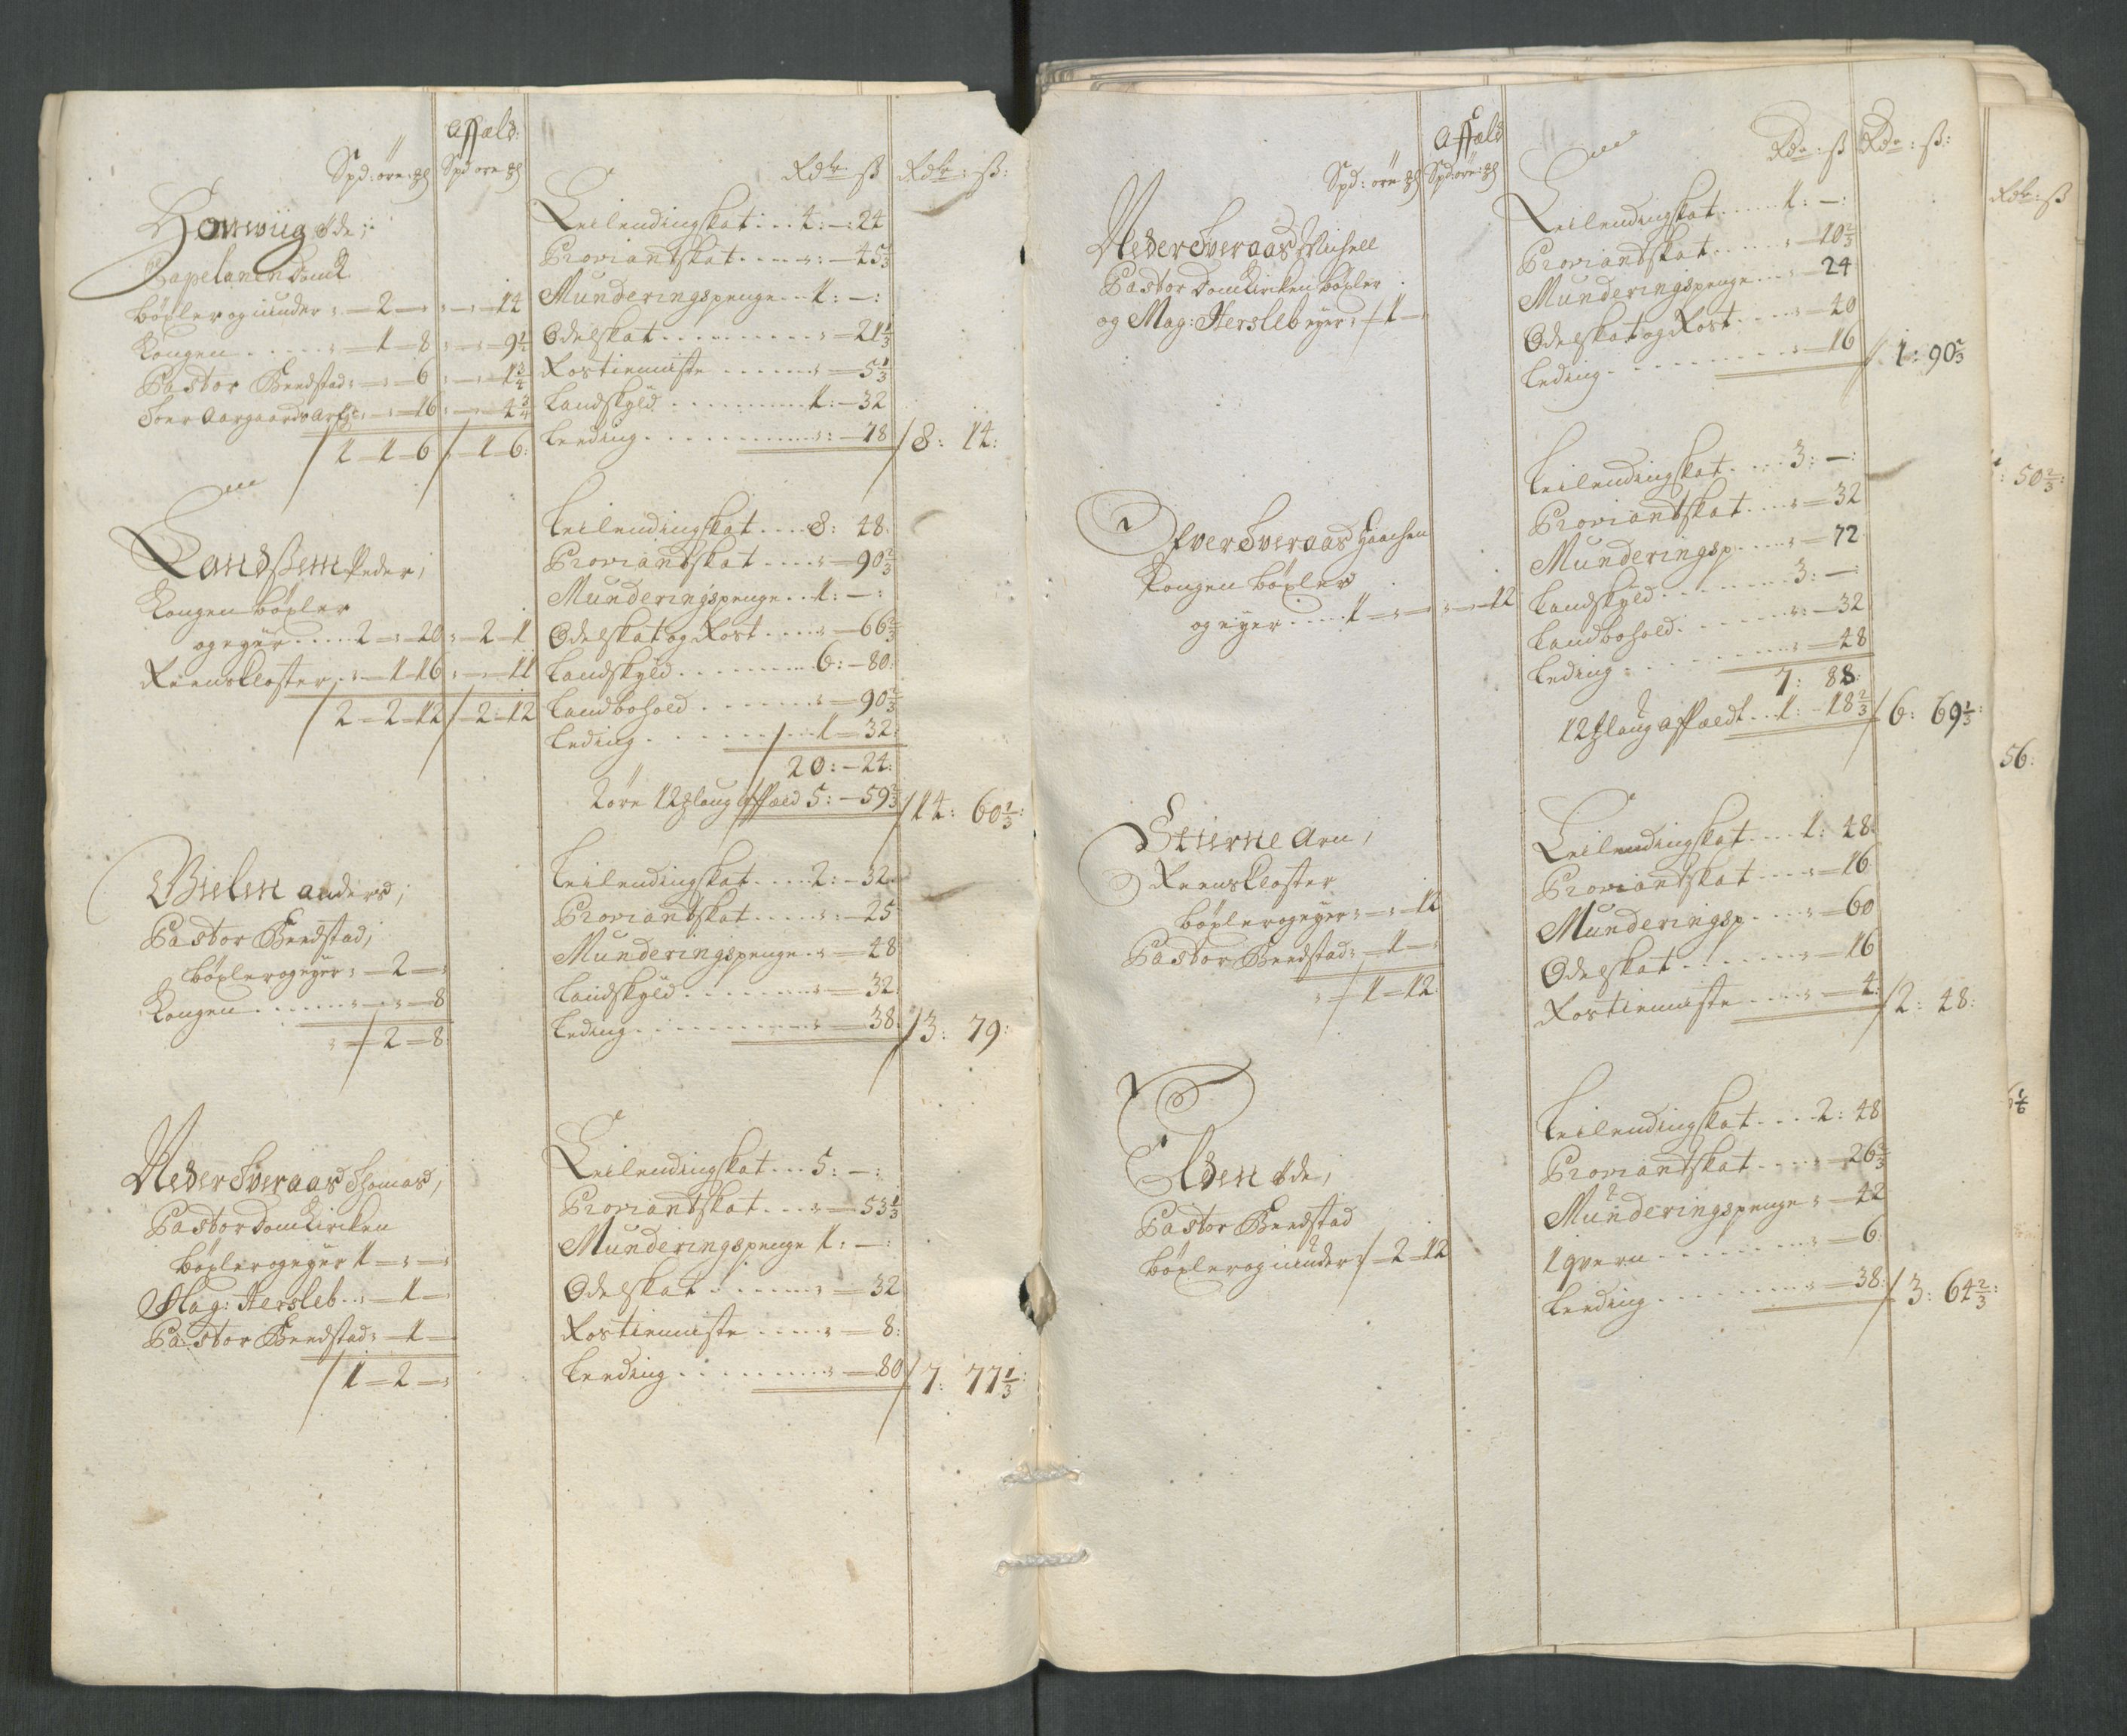 Affæld:
Spd: öre: ꝳl Spd öre ꝳl Rdlr ß Rdlr: ß:
Honwiig öde;
Capelanen DomK
böxler og under „ — 2 — „ — „ — 14
Kongen . . . . . „ — 1 — 8 „ — „ — 9 1/2
Pastor Bredstad: „ — „ — 6 „ — „ — 1 3/4
Soer Aargaards Arfg: „ — „ — 16 „ — „ — 4 3/4
/ 1 — 1 — 6 / „ — 1 — 6:
Leilendingskat . . . 4: — : 24
Proviantskat . . . . „ : — 45 1/3
Munderingspenge . . . 1: — :
Odelskat . . . . . . . . . . „ — 21 1/3
Rostienniste . . . . . . „ — 5 1/3
Landskyld . . . . . . . . . . 1: — 32
Leeding . . . . . . . . . . „ : — 18 / 8: 14:
Landßem Peder;
Kongen böxler
og eyer . . . . 2 — „ — 20 „ — 2 — 1
Reens Closter „ — 1 — 16 „ — „ — 11
/ 2 — 2 — 12 / — 2 — 12
Leilendingskat . . . . 8: 48:
Proviantskat . . . . . „ — 90 2/3
Munderingspenge . . 1: — :
Odelskat og Rost . . . . „ — 66 2/3
Landskyld . . . . . . . . . 6: — 80:
Landbohold . . . . . . . . „ — 90 2/3
Leding . . . . . . . . . . 1 — 32:
/ 20: — 24:
2 öre 12 ꝳl aug affæld 5: — 59 2/3 / 14: 60 1/3:
Wielen Anders;
Pastor Bredstad;
böxler og eyer „ — 2 — „
Kongen . . . . . . „ — „ — 8
„ — / — 2 — 8:
Leilendingskat . . . . . 2: — 32
Proviantskat . . . . . „ : — 25
Munderingspenge . „ — 48
Landskyld . . . . . . . . „ — 32:
Leding . . . . . . . . . . . „ — 38: / 3: 79:
Neder Sveraas Thomas;
Pastor Domkircken
böxler og eyer 1 — „ — „
Mag: Hersleb . . „ — 1 — „
Pastor Bredstad: „ — 1 — „
/ 1 — 2 — „
Leilendingskat . . . 5: — :
Proviantskat . . . „ — 53 1/3
Munderingspenge 1: — :
Odelskat . . . . . . . . „ — 32
Rostienniste . . . . . „ — 8:
Leeding . . . . . . . . . „ — 80 / 7: 77 1/3:
Affæld
Spd: öre ꝳl Spd: öre: ꝳl Rdr: ß Rdr: ß:
Neder Sveraas Michell
Pastor Domkircken böxler
og Mag: Hersleb eyer „ / — 1 — „
Leilendingskat . . . . . 1: — :
Proviantskat . . . . . . „ — 10 2/3
Munderingspenge . . . „ — 24
Odelskat og Rost . . . . . „ — 40
Leding . . . . . . . . . . . „ — 16 / 1: 90 2/3
Ofver Sveraas Haachen
Kongen böxler
og eyer . . . . . 1 — „ — „ „ — „ — 12
Leilendingskat . . . . 3: — :
Proviantskat . . . . „ — 32
Munderingsp . . . . . „ — 72
Landskyld . . . . . . . . . 3: — :
Landbohold . . . . . . . „ : — 32
Leding . . . . . . . . . . „ — 48
7: 88:
12 ꝳl aug affældt . . 1: — 18 2/3 / 6: 69 1/3:
Stierne Arn;
Reens Closter
böxler og eyer „ — „ — 12
Pastor Bredstad: — 1 — „
„ — / 1 — 12:
Leilendingskat . . . . 1: 48:
Proviantskat . . . . „ — 16
Munderingsp . . . . „ — 60
Odelskat . . . . . . . . „ — 16
Rostienniste . . . . . „ — 4: / 2: 48:
Elden öde;
Pastor Bredstad
böxler og under „ / — 2 — 12
Leilendingskat . . . . 2: 48
Proviantskat . . . . . „ — 26 2/3
Munderingspenge „ — 42
1 qvern . . . . . . . . . „ — 6:
Leeding . . . . . . . . . „ — 38: / 3: 64 2/3:
Rdr: ß
: 50 2/3:
56: